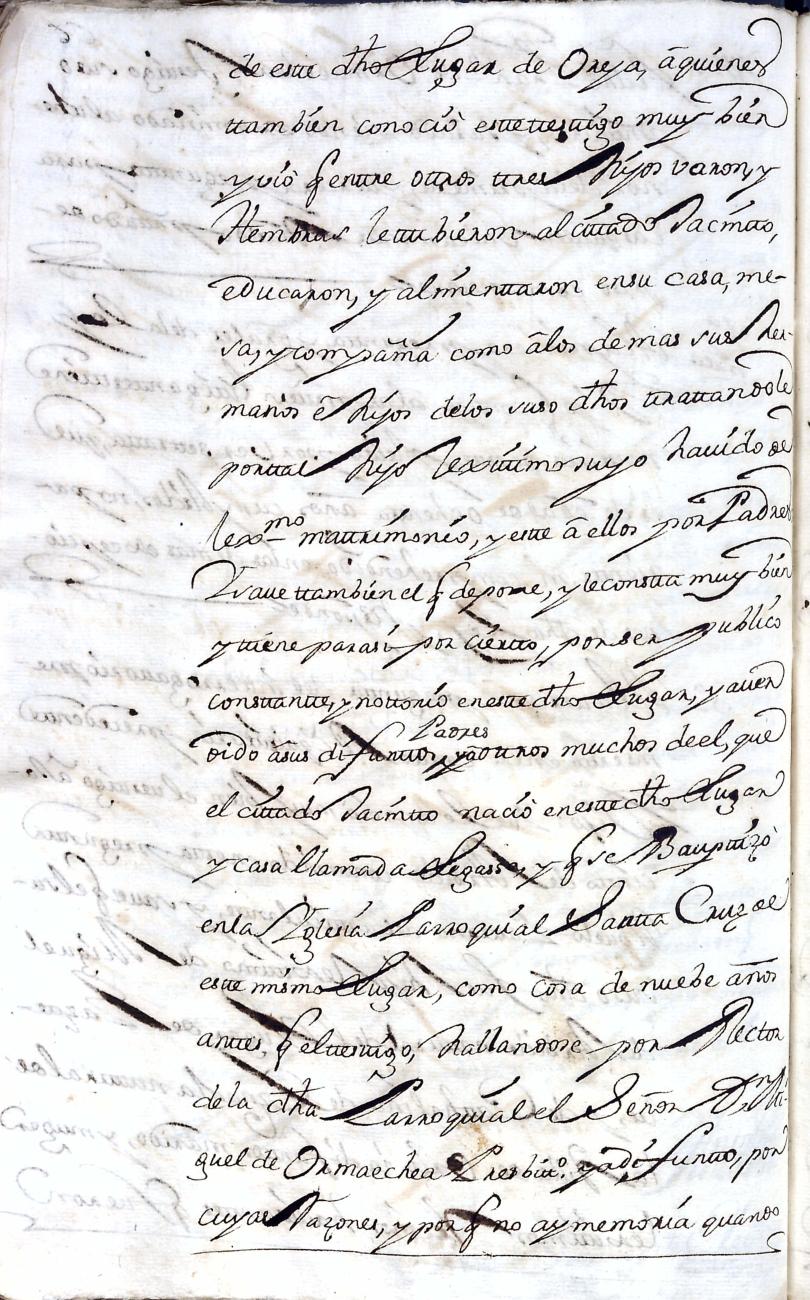 de este dho Lugar de Oreja, â quienes
ttambien conociò este ttesttigo muy bien
y viò q entre otros ttres Hijos varon, y
Hembras le ttubieron al cittado Jacintto,
educaron, y alimenttaron en su casa, me-
sa, y compañia como â los demas sus Her-
manos ê Hijos de los suso dhos ttrattandole
por ttal Hijo lexittimo suyo havido de
lexmo mattrimonio, y este â ellos por Padres
y save ttambien el q depone, y le constta muy bien
y ttiene para si por ciertto, por ser publico
consttantte, y nottorio en este dho Lugar, y aver
oido â sus difunttos Padres, y a otros muchos de el, que
el cittado Jacintto naciò en este dho Lugar
y casa llamada Legasse, y q se Bauptizò
en la Yglesia Parroquial Santta Cruz de
este mismo Lugar, como cosa de nuebe años
anttes, q el ttesttigo, hallandose por Rector
de la dha Parroquial el Señor Dn Mi-
guel de Ormaechea Presbitto. ya difuntto, por
cuyas Razones, y por q no ay memoria quando